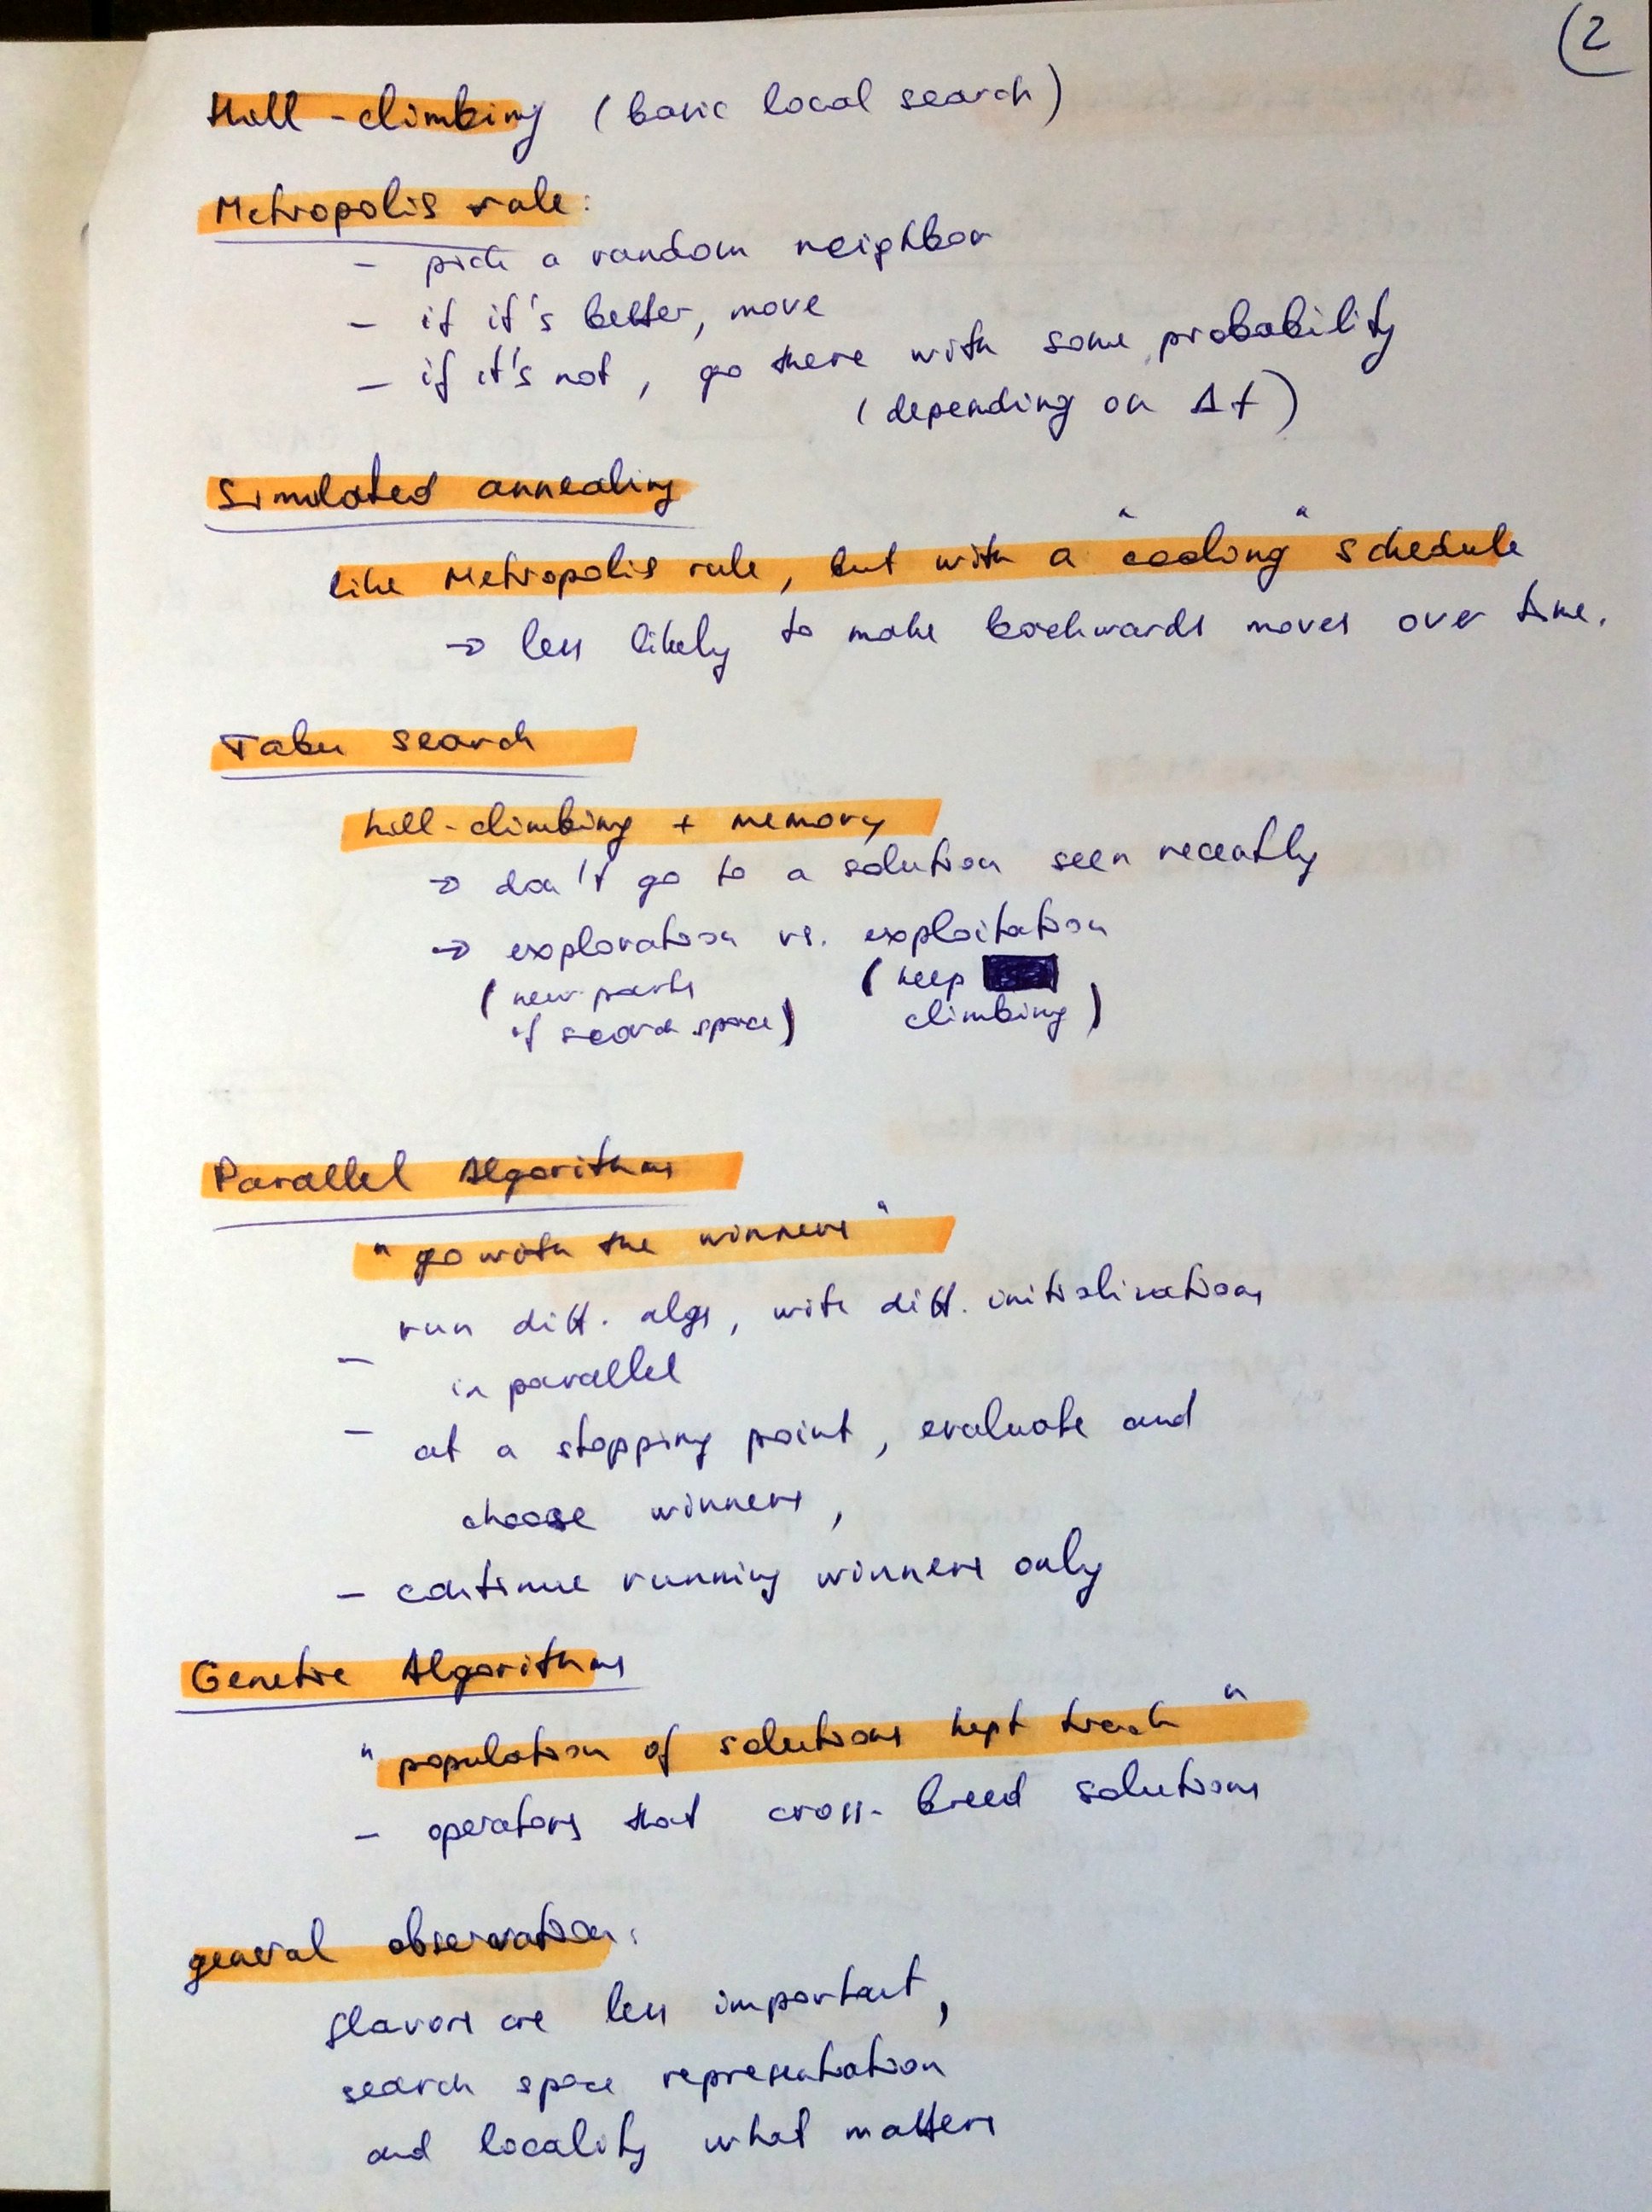 (2
Hill-climbing (basic local search)
Metropolis rule:
- pick a random neighbor
- if it's better, move
- if it's not, go there with some probability
(depending on Δf)
Simulated annealing
like Metropolis rule, but with a "cooling" schedule
→ less likely to make backwards moves over time.
Tabu search
hill-climbing + memory
→ don't go to a solution seen recently
→ exploration vs. exploitation
(new parts (keep
of search space) climbing)
Parallel Algorithms
"go with the winners"
- run diff. algs, with diff. initializations
in parallel
- at a stopping point, evaluate and
choose winners,
- continue running winners only
Genetic Algorithms
"population of solutions kept track"
- operators that cross-breed solutions
general observation:
flavors are less important,
search space representation
and locality what matters